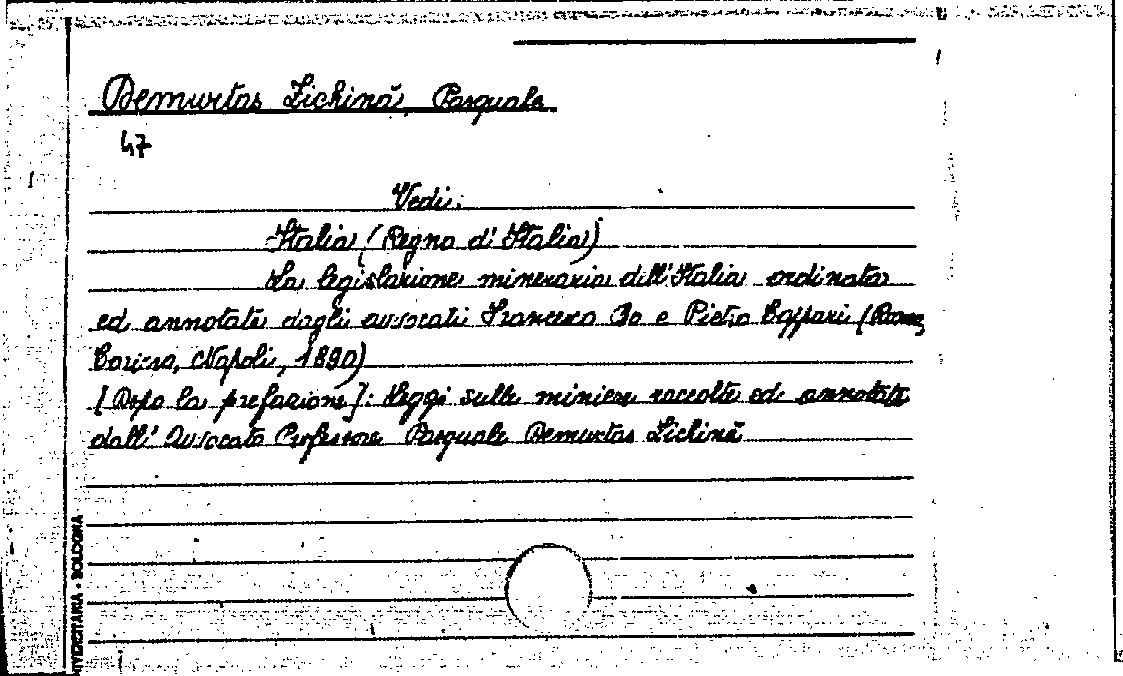 Demurtas Zichinà, Pasquale
47
Vedi:
Italia (Regno d'Italia)
La legislazione mineraria dell'Italia ordinata
ed annotata dagli avvocati Francesco Bo e Pietro (Roma,
Napoli, 1890)
[Dopo la prefazione]: Leggi sulle miniere raccolte ed annotate
dall'Avvocato Professore Pasquale Demurtas Zichinà
UNIVERSITARIA - BOLOGNA